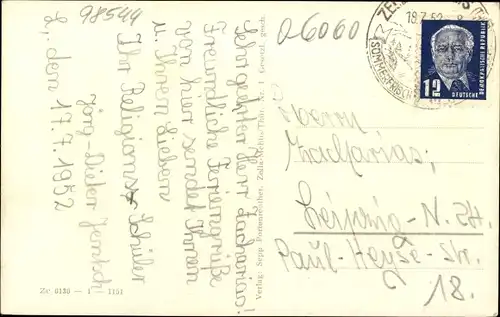 98544
06060
Sehr geehrter Herr Zacharias!
Freundliche Feriengrüße
von hier sendet Ihnen
u. Ihren Lieben
Ihr Religions-Schüler
Jörg-Dieter
d. 17.7.1952
Verlag: Sepp Portenreither, Zella-Mehlis/Thür.
Gesetzl. gesch.
Zc 0130 — 1 — 1151
18.7.52
DEUTSCHE
DEMOKRATISCHE REPUBLIK
12
Herrn
Zacharias,
Leipzig-N. 24
Paul-Heyse-Str.
18.